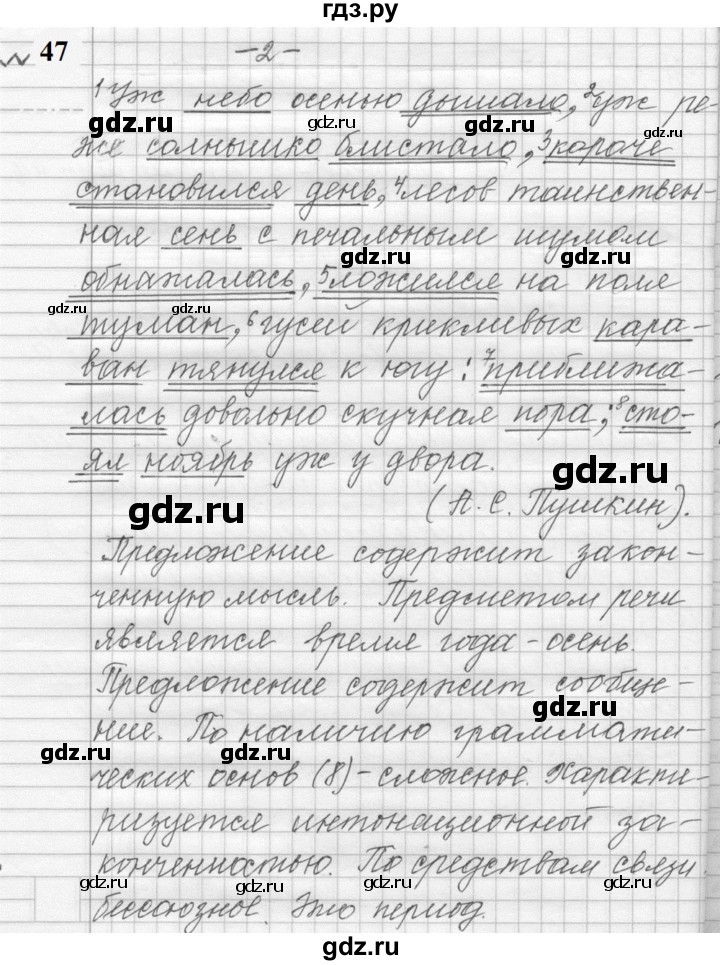 гдз.ру
47
-2-
¹Уж небо осенью дышало, ²уж ре-
же солнышко блистало, ³короче
становился день, ⁴лесов таинствен-
ная сень с печальным шумом
обнажалась, ⁵ложился на поля
туман, ⁶гусей крикливых кара-
ван тянулся к югу: ⁷приближа-
лась довольно скучная пора; ⁸сто-
ял ноябрь уж у двора.
(А.С. Пушкин).
Предложение содержит закон-
ченную мысль. Предметом речи
является время года - осень.
Предложение содержит сообще-
ние. По наличию граммати-
ческих основ (8) - сложное. Характе-
ризуется интонационной за-
конченностью. По средствам связи
бессоюзное. Это период.
gdz.ru